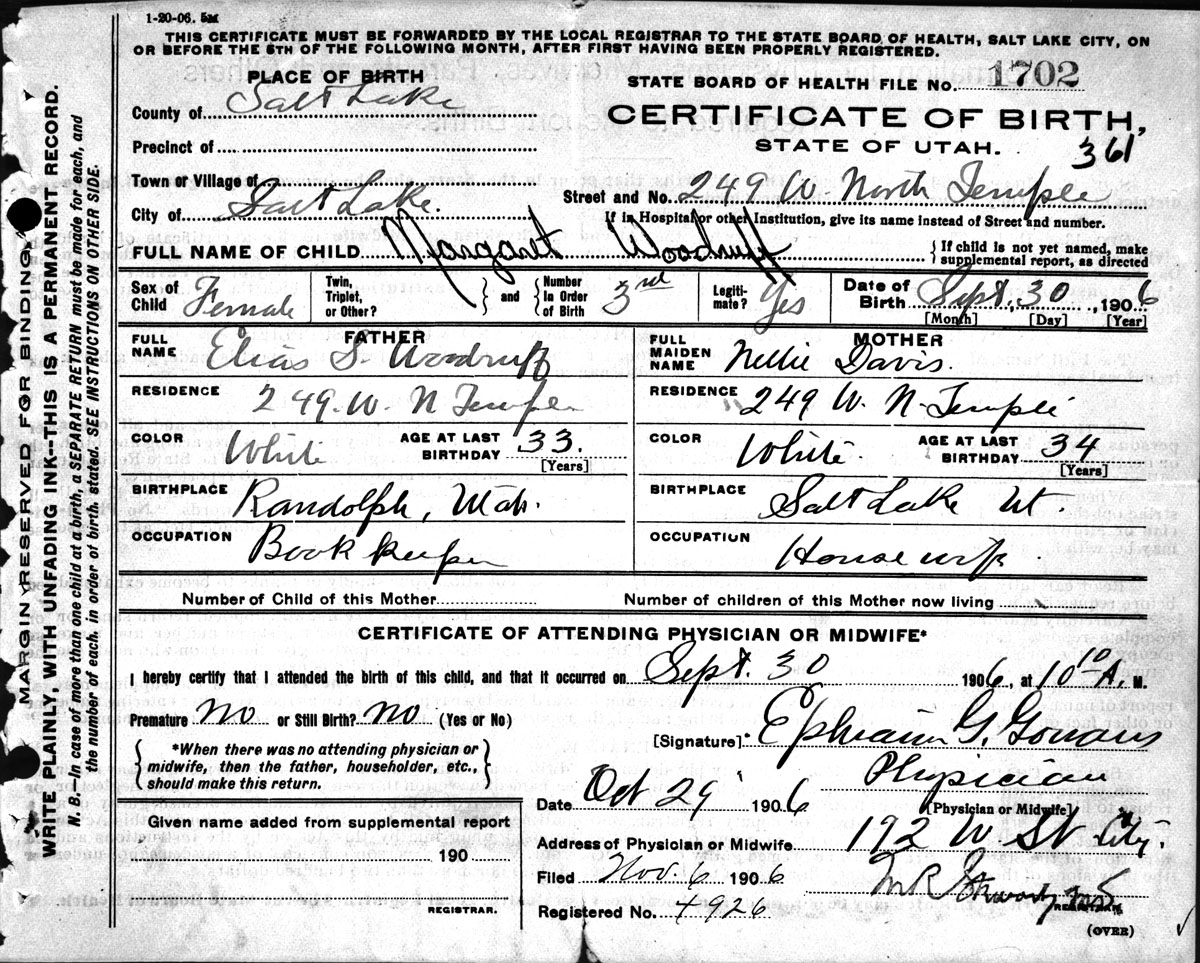 1-20-06. 5M
THIS CERTIFICATE MUST BE FORWARDED BY THE LOCAL REGISTRAR TO THE STATE BOARD OF HEALTH, SALT LAKE CITY, ON
OR BEFORE THE 5TH OF THE FOLLOWING MONTH, AFTER FIRST HAVING BEEN PROPERLY REGISTERED.
PLACE OF BIRTH
County of Salt Lake
Precinct of
Town or Village of
City of Salt Lake.
STATE BOARD OF HEALTH FILE No. 1702
CERTIFICATE OF BIRTH,
STATE OF UTAH. 361
Street and No. 249 W. North Temple
If in Hospital or other Institution, give its name instead of Street and number.
FULL NAME OF CHILD Margaret Woodruff
{If child is not yet named, make
supplemental report, as directed
Sex of Child Female
Twin, Triplet, or Other? } and { Number In Order of Birth 3rd
Legitimate? Yes
Date of Birth Sept. 30, 1906
[Month] [Day] [Year]
FATHER
FULL NAME Elias S. Woodruff
RESIDENCE 249. W. N Temple
COLOR White AGE AT LAST BIRTHDAY 33.
[Years]
BIRTHPLACE Randolph, Utah.
OCCUPATION Book keeper
MOTHER
FULL MAIDEN NAME Nellie Davis.
RESIDENCE 249 W. N. Temple
COLOR White. AGE AT LAST BIRTHDAY 34
[Years]
BIRTHPLACE Salt Lake Ut.
OCCUPATION House wife.
Number of Child of this Mother
Number of children of this Mother now living
CERTIFICATE OF ATTENDING PHYSICIAN OR MIDWIFE*
I hereby certify that I attended the birth of this child, and that it occurred on Sept. 30 1906, at 10 10 A. M.
Premature No or Still Birth? No (Yes or No)
{*When there was no attending physician or
midwife, then the father, householder, etc.,
should make this return.}
[Signature] Ephraim G. Gowans
Physician
[Physician or Midwife]
Date Oct 29 1906
Address of Physician or Midwife 192 W St City.
Filed Nov. 6 1906
M R
REGISTRAR
Registered No. 4926
(OVER)
Given name added from supplemental report
190
REGISTRAR.
MARGIN RESERVED FOR BINDING
WRITE PLAINLY, WITH UNFADING INK--THIS IS A PERMANENT RECORD.
N. B.—In case of more than one child at a birth, a SEPARATE RETURN must be made for each, and
the number of each, in order of birth, stated. SEE INSTRUCTIONS ON OTHER SIDE.